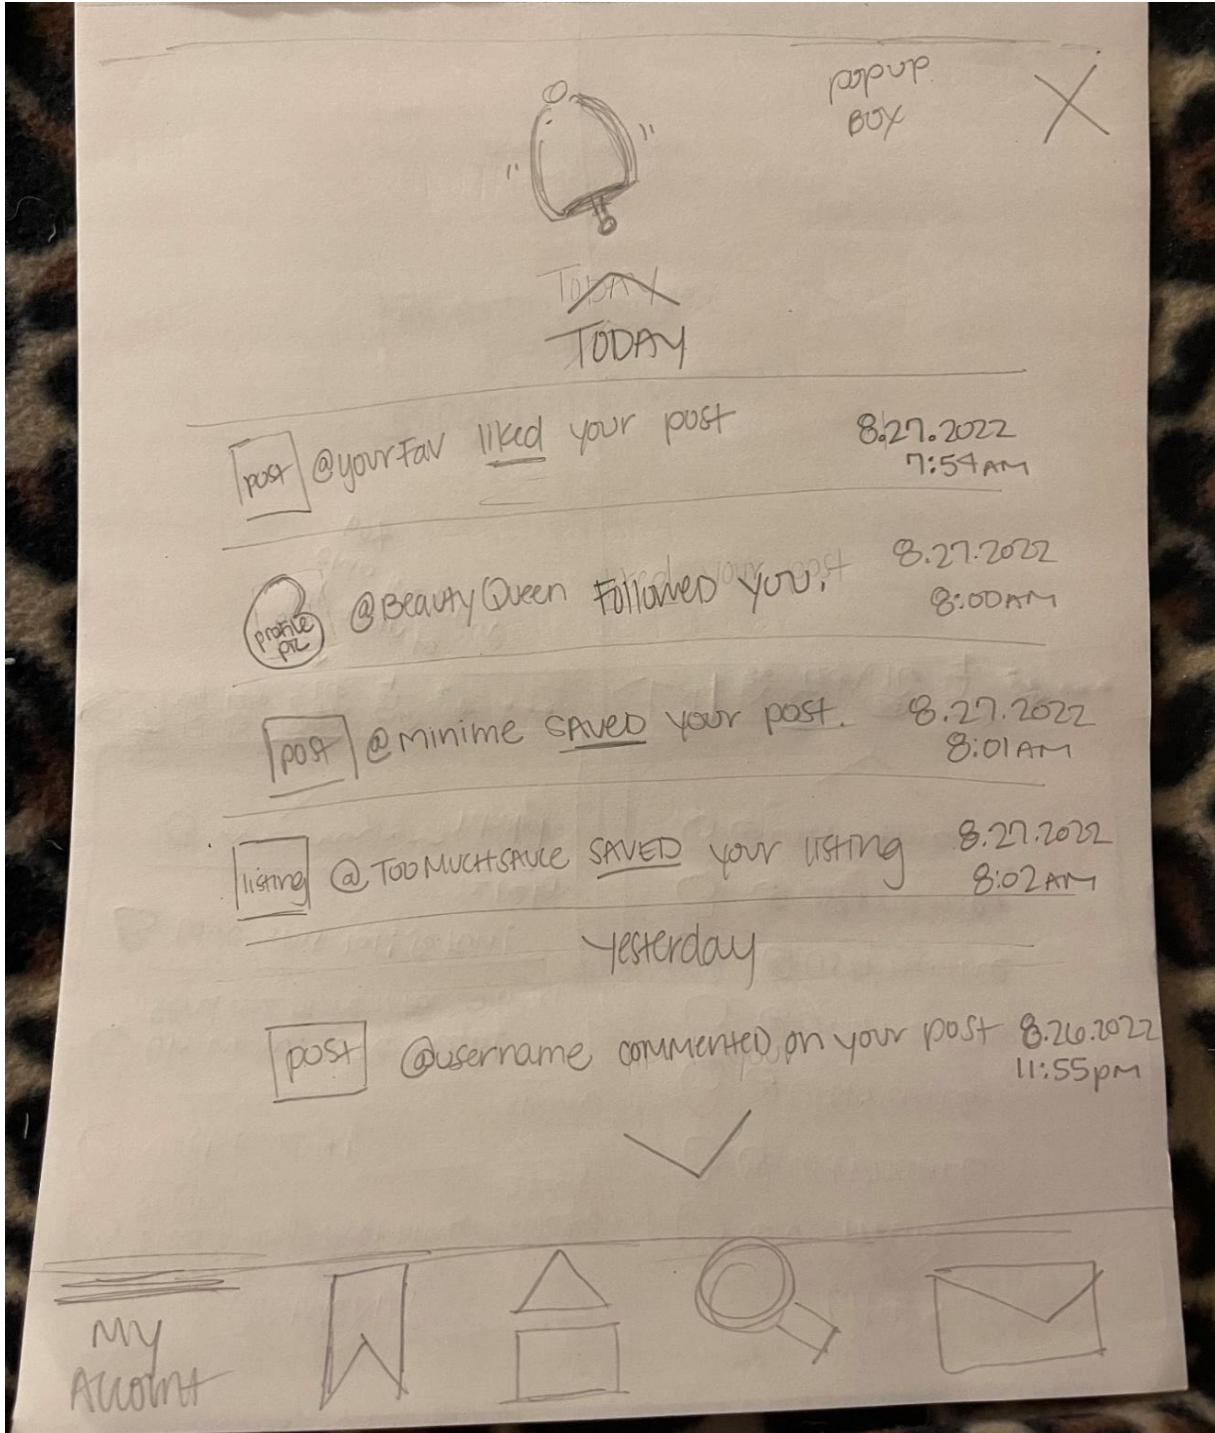 popup
BOX
TODAY
TODAY
post @yourFav liked your post 8.27.2022
7:54AM
profile
pic
@BeautyQueen Followed you. 8.27.2022
8:00AM
post @minime SAVED your post. 8.27.2022
8:01AM
listing @TOOMUCHSAUCE SAVED your listing 8.27.2022
8:02AM
Yesterday
post @username commented on your post 8.26.2022
11:55pm
MY
Account